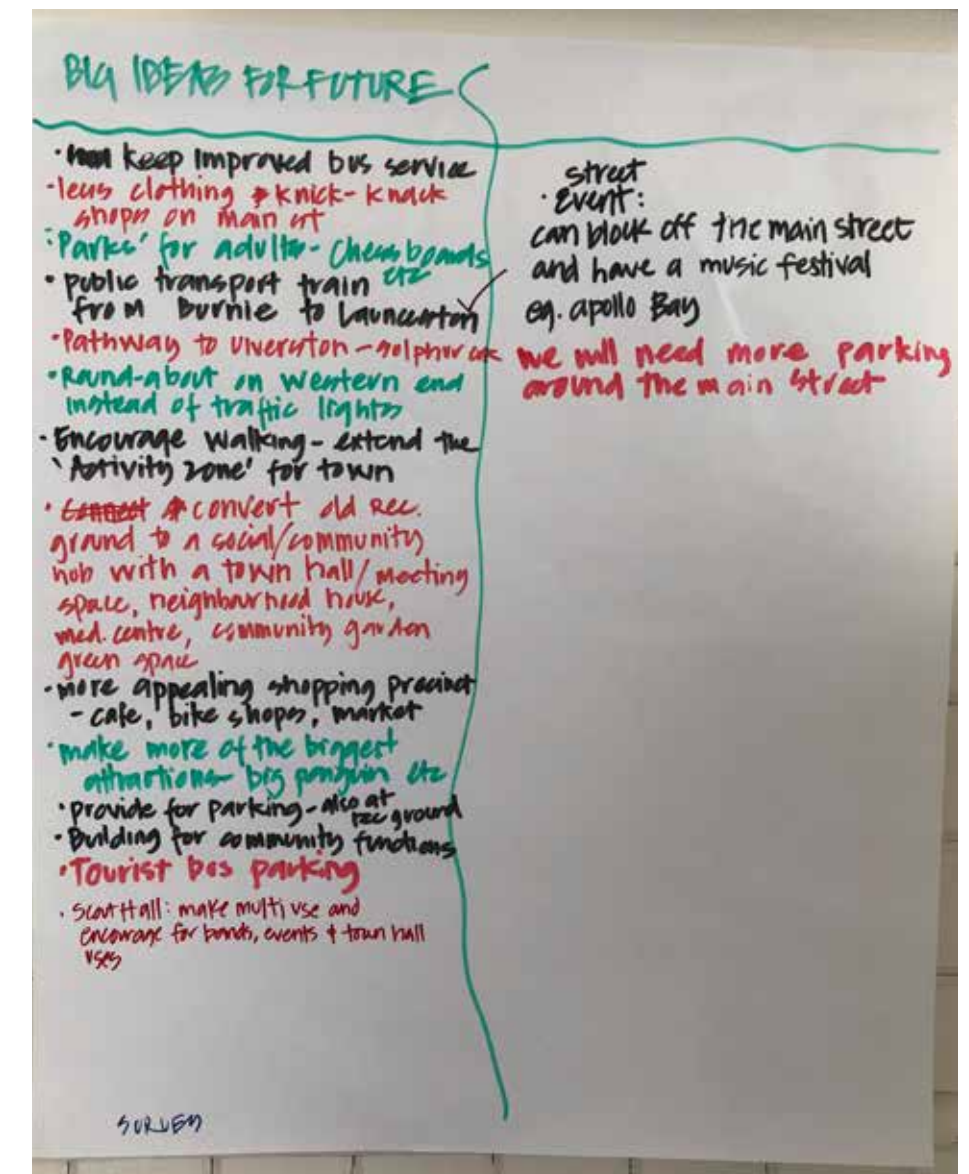 BIG IDEAS FOR FUTURE
• keep improved bus service
• less clothing & knick-knack
shops on main st
• 'Parks' for adults - Chess boards
etc
• public transport train
from Burnie to Launceston
• Pathway to Ulverston - sulphur ck
• Round-about on western end
instead of traffic lights
• Encourage walking - extend the
'Activity zone' for town
• convert old Rec.
ground to a social/community
hub with a town hall/meeting
space, neighbourhood house,
med. centre, community garden
green space
• more appealing shopping precinct
- cafe, bike shops, market
• make more of the biggest
attractions - big penguin etc
• provide for parking - also at
rec ground
• Building for community functions
• Tourist bus parking
• Scout Hall: make multi use and
encourage for bands, events & town hall
uses
street
• Event:
can block off the main street
and have a music festival
eg. apollo Bay
we will need more parking
around the main street